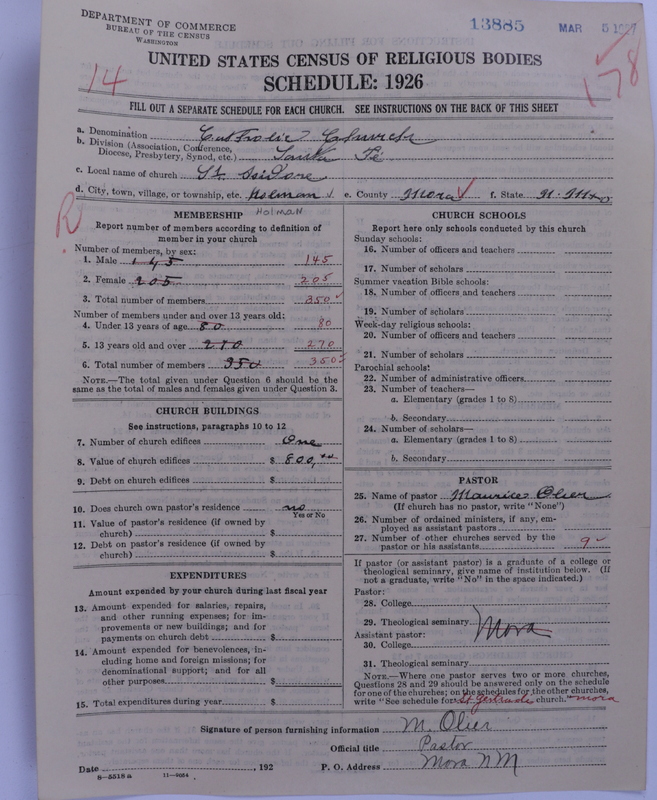 DEPARTMENT OF COMMERCE
BUREAU OF THE CENSUS
WASHINGTON
13885
MAR 5 1927
14
178
UNITED STATES CENSUS OF RELIGIOUS BODIES
SCHEDULE: 1926
FILL OUT A SEPARATE SCHEDULE FOR EACH CHURCH. SEE INSTRUCTIONS ON THE BACK OF THIS SHEET
a. Denomination Catholic Church
b. Division (Association, Conference, Diocese, Presbytery, Synod, etc.) Santa Fe
c. Local name of church St. Isidore
d. City, town, village, or township, etc. Holman e. County Mora f. State N. Mex
Holman
R
MEMBERSHIP
Report number of members according to definition of
member in your church
Number of members, by sex:
1. Male 145 145
2. Female 205 205
3. Total number of members 350
Number of members under and over 13 years old:
4. Under 13 years of age 80 80
5. 13 years old and over 270 270
6. Total number of members 350 350
NOTE.—The total given under Question 6 should be the
same as the total of males and females given under Question 3.
CHURCH BUILDINGS
See instructions, paragraphs 10 to 12
7. Number of church edifices One
8. Value of church edifices $ 800,
9. Debt on church edifices $
10. Does church own pastor's residence no
Yes or No
11. Value of pastor's residence (if owned by
church) $
12. Debt on pastor's residence (if owned by
church) $
EXPENDITURES
Amount expended by your church during last fiscal year
13. Amount expended for salaries, repairs,
and other running expenses; for im-
provements or new buildings; and for
payments on church debt $
14. Amount expended for benevolences, in-
cluding home and foreign missions; for
denominational support; and for all
other purposes $
15. Total expenditures during year $
CHURCH SCHOOLS
Report here only schools conducted by this church
Sunday schools:
16. Number of officers and teachers
17. Number of scholars
Summer vacation Bible schools:
18. Number of officers and teachers
19. Number of scholars
Week-day religious schools:
20. Number of officers and teachers
21. Number of scholars
Parochial schools:
22. Number of administrative officers
23. Number of teachers—
a. Elementary (grades 1 to 8)
b. Secondary
24. Number of scholars—
a. Elementary (grades 1 to 8)
b. Secondary
PASTOR
25. Name of pastor Maurice Olier
(If church has no pastor, write "None")
26. Number of ordained ministers, if any, em-
ployed as assistant pastors
27. Number of other churches served by the
pastor or his assistants 9
If pastor (or assistant pastor) is a graduate of a college or
theological seminary, give name of institution below. (If
not a graduate, write "No" in the space indicated.)
Pastor:
28. College
29. Theological seminary Mora
Assistant pastor:
30. College
31. Theological seminary
NOTE.—Where one pastor serves two or more churches,
Questions 28 and 29 should be answered only on the schedule
for one of the churches; on the schedules for the other churches,
write "See schedule for St Gertrude church." mora
Signature of person furnishing information M. Olier
Official title Pastor
Date , 192 P. O. Address Mora N M
8—5518 a 11—8034